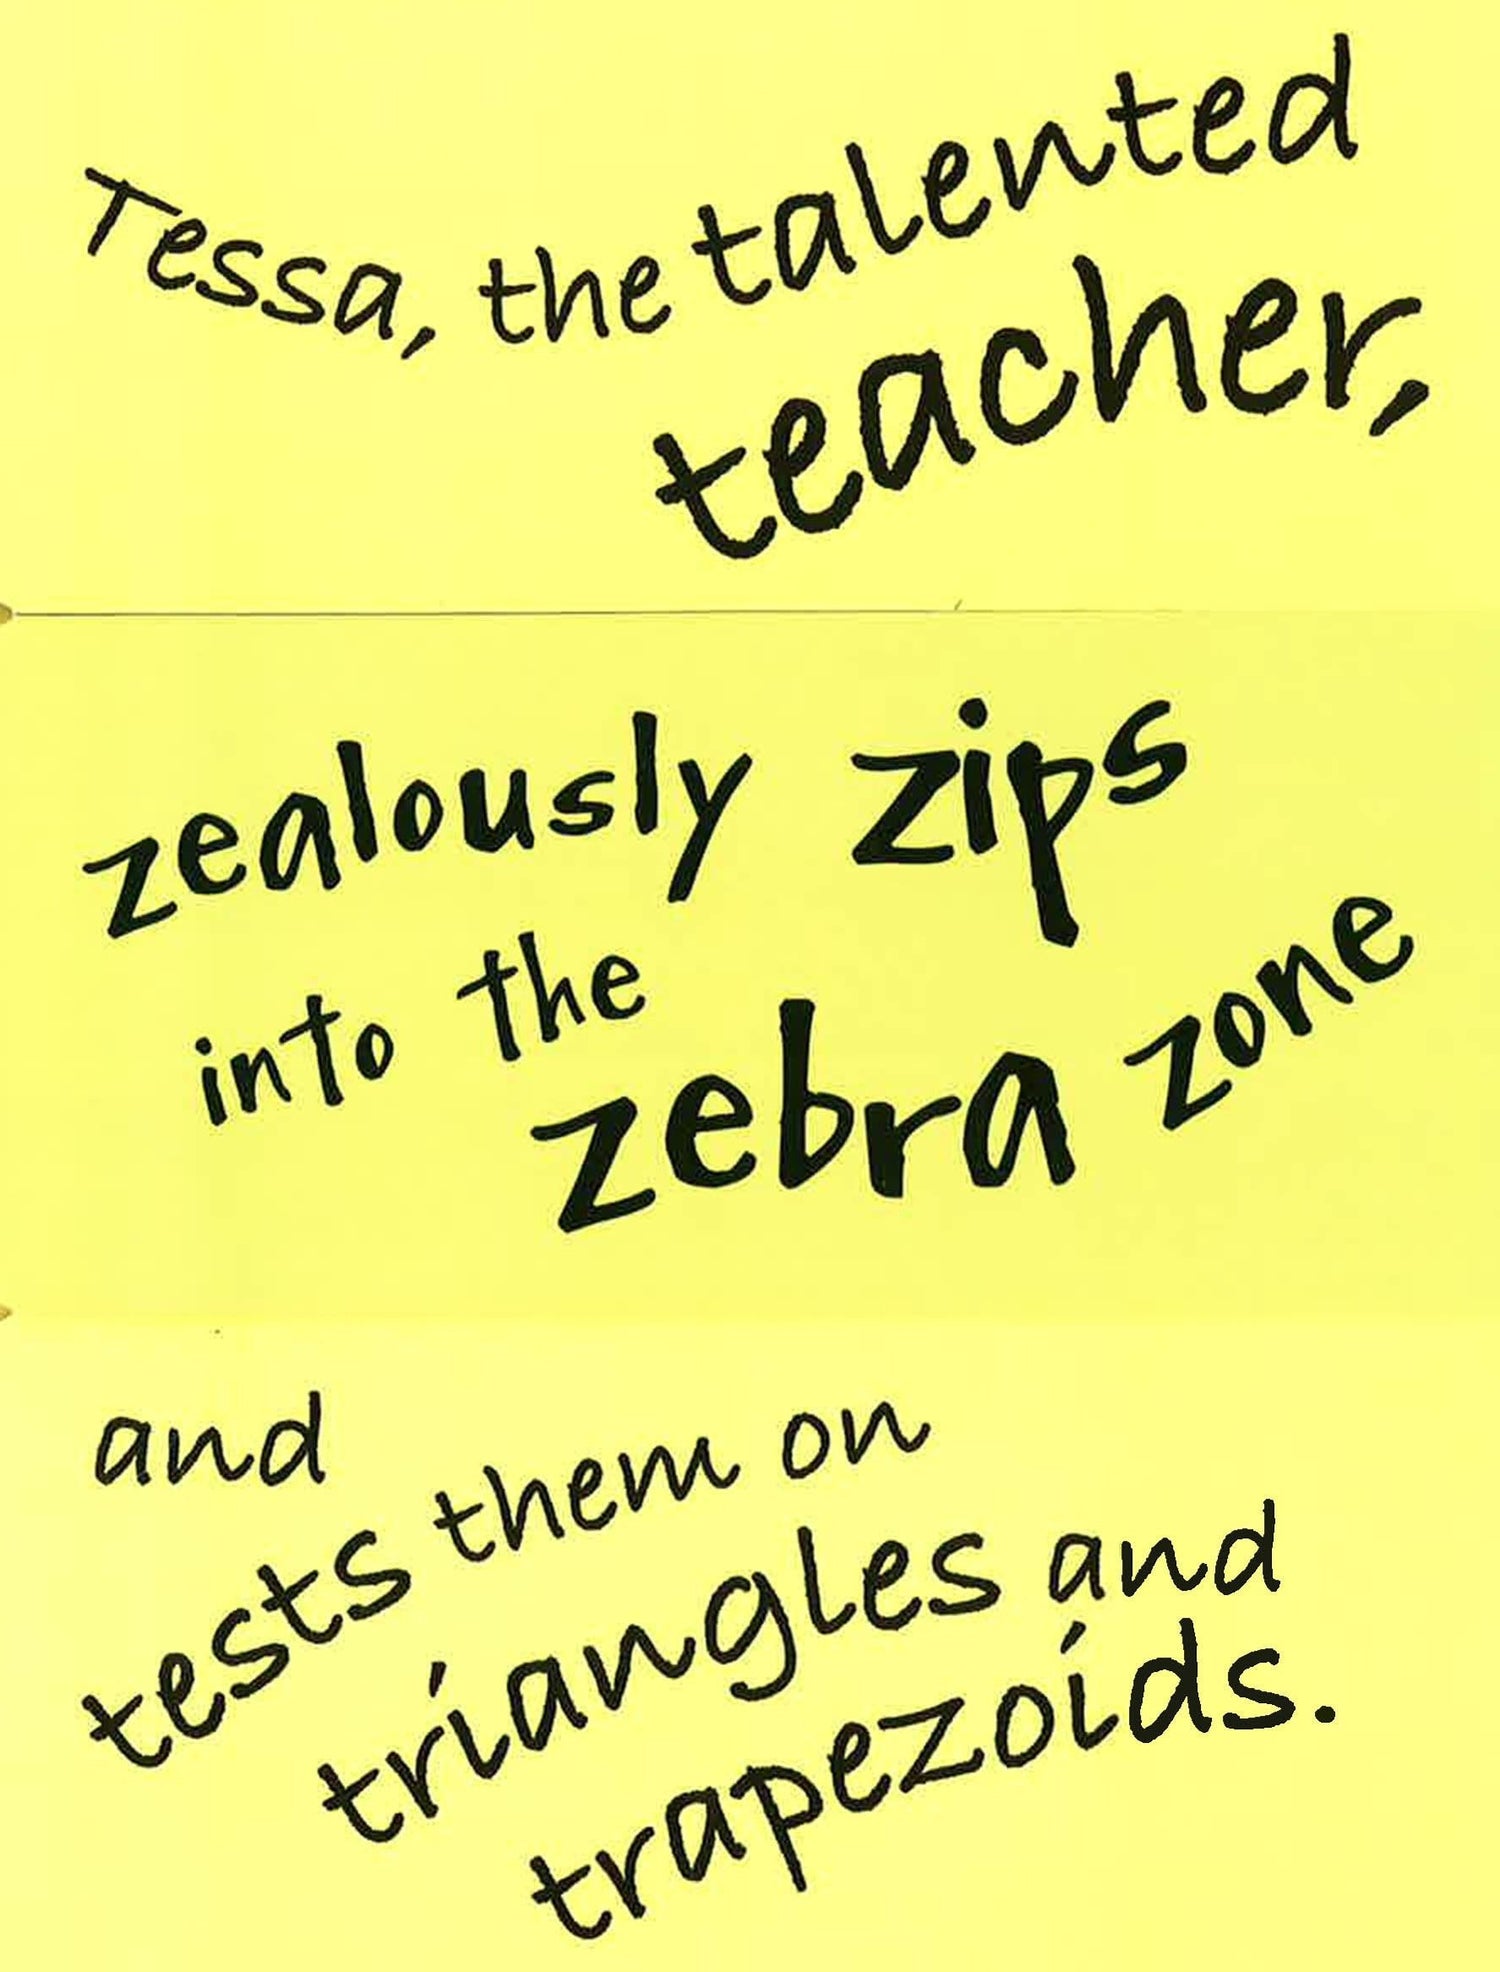 Tessa, the talented
teacher,
zealously zips
into the
zebra zone
and
tests them on
triangles and
trapezoids.